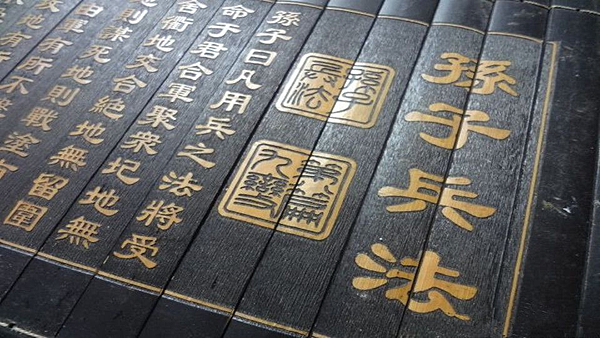 孫子兵法
孫子
兵法
篇
九變
孫子曰凡用兵之法將受
命于君合軍聚衆圮地無
舍衢地交合絕地無留圍
地則謀死地則戰塗有
由軍有所不
地有所